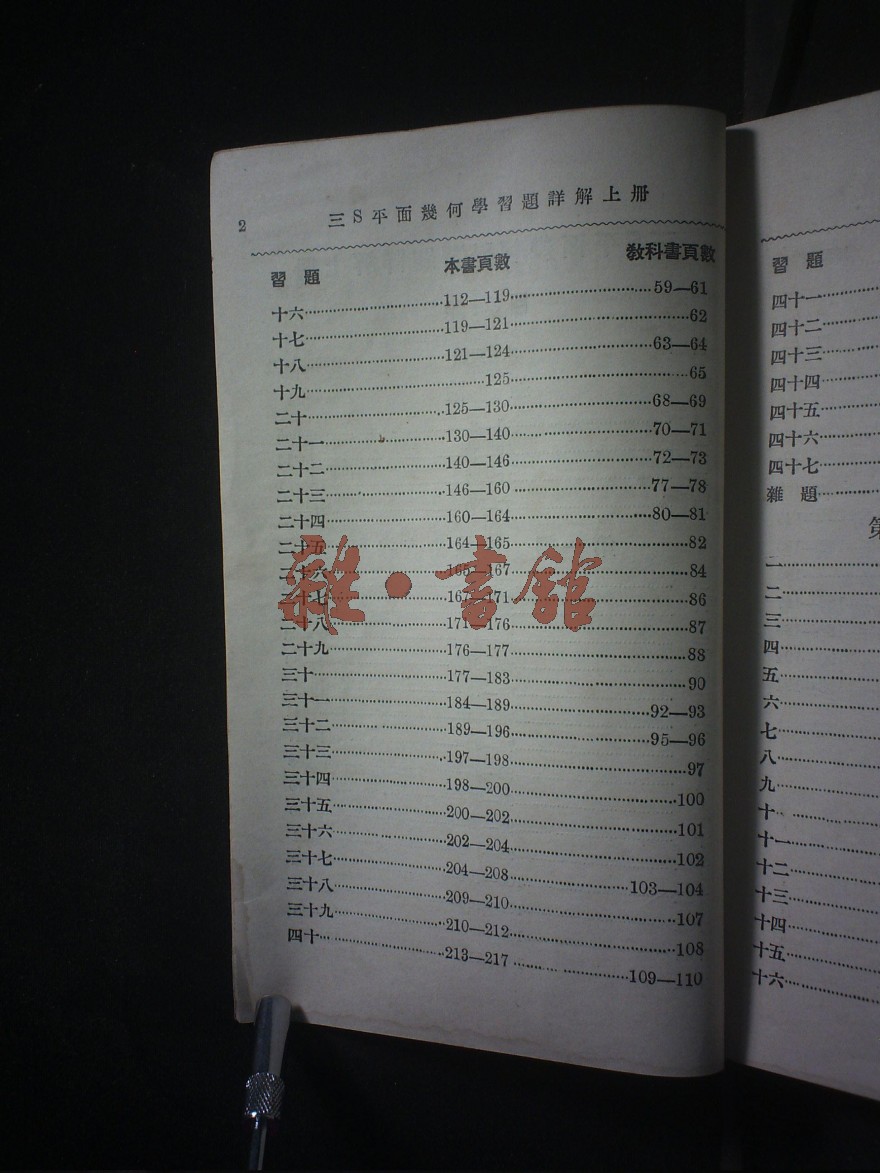 2
三S平面幾何學習題詳解上册
習 題 本書頁數 教科書頁數
十六……112—119……59—61
十七……119—121……62
十八……121—124……63—64
十九……125……65
二十……125—130……68—69
二十一……130—140……70—71
二十二……140—146……72—73
二十三……146—160……77—78
二十四……160—164……80—81
二十五……164—165……82
二十六……165—167……84
二十七……167—171……86
二十八……171—176……87
二十九……176—177……88
三十……177—183……90
三十一……184—189……92—93
三十二……189—196……95—96
三十三……197—198……97
三十四……198—200……100
三十五……200—202……101
三十六……202—204……102
三十七……204—208……103—104
三十八……209—210……107
三十九……210—212……108
四十……213—217……109—110
雜·書館
習 題
四十一……
四十二……
四十三……
四十四……
四十五……
四十六……
四十七……
雜 題……
第
一……
二……
三……
四……
五……
六……
七……
八……
九……
十……
十一……
十二……
十三……
十四……
十五……
十六……